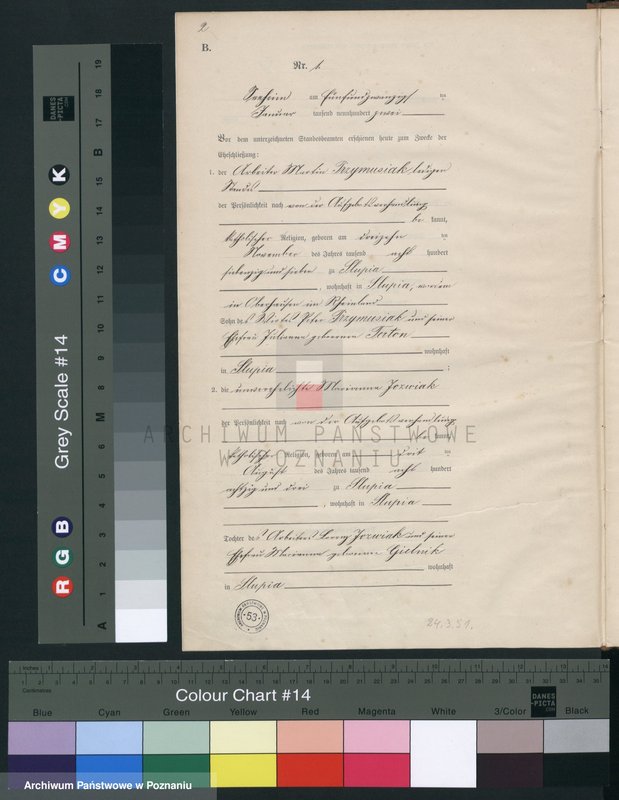 2
B.
Nr. 1.
Seeheim am fünfundzwanzigsten
Januar tausend neunhundert zwei
Vor dem unterzeichneten Standesbeamten erschienen heute zum Zwecke der
Eheschließung:
1. der Arbeiter Martin Przymusiak ledigen
Standes
der Persönlichkeit nach von der Aufgebotsverhandlung
be kannt,
katholischer Religion, geboren am dreizehn ten
November des Jahres tausend acht hundert
siebenzig und sieben zu Slupia
, wohnhaft in Slupia,
in Oberhausen im Rheinland
Sohn des Peter Przymusiak und seiner
Ehefrau Julianna geborenen
wohnhaft
in Slupia ;
2. die unverehelichte Marianna Jozwiak
der Persönlichkeit nach von der Aufgebotsverhandlung
be kannt,
katholischer Religion, geboren am drit ten
August des Jahres tausend acht hundert
achtzig und drei zu Slupia
, wohnhaft in Slupia
Tochter des Arbeiters Jozwiak und seiner
Ehefrau Marianna geborenen Gielnik
wohnhaft
in Slupia
53
84.3.51.
ARCHIWUM PAŃSTWOWE
W POZNANIU
Grey Scale #14
R G B C M Y K
A 1 2 3 4 5 6 M 8 9 10 11 12 13 14 15 B 17 18 19
DANES
-PICTA
.COM
Inches
Centimetres
Colour Chart #14
DANES
-PICTA
.COM
Blue Cyan Green Yellow Red Magenta White 3/Color Black
Archiwum Państwowe w Poznaniu